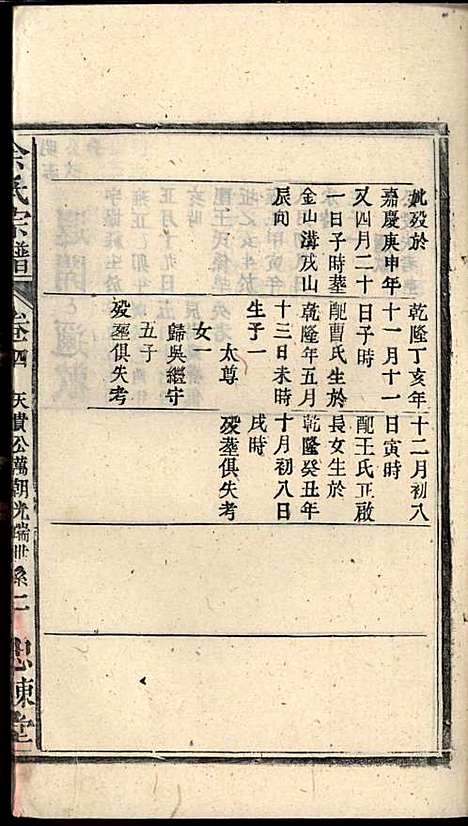 妣歿於
嘉慶庚申年
又四月二十
一日子時葬
金山溝戌山
辰向
乾隆丁亥年
十一月十一
日子時
配曹氏生於
乾隆年五月
十三日未時
生子一
太尊
女一
歸吳繼守
五子
歿葬俱失考
十二月初八
日寅時
配王氏正啟
長女生於
乾隆癸丑年
十月初八日
戌時
歿葬俱失考
余氏宗譜
卷四
天貴公萬朝光瑞世系
二
堂